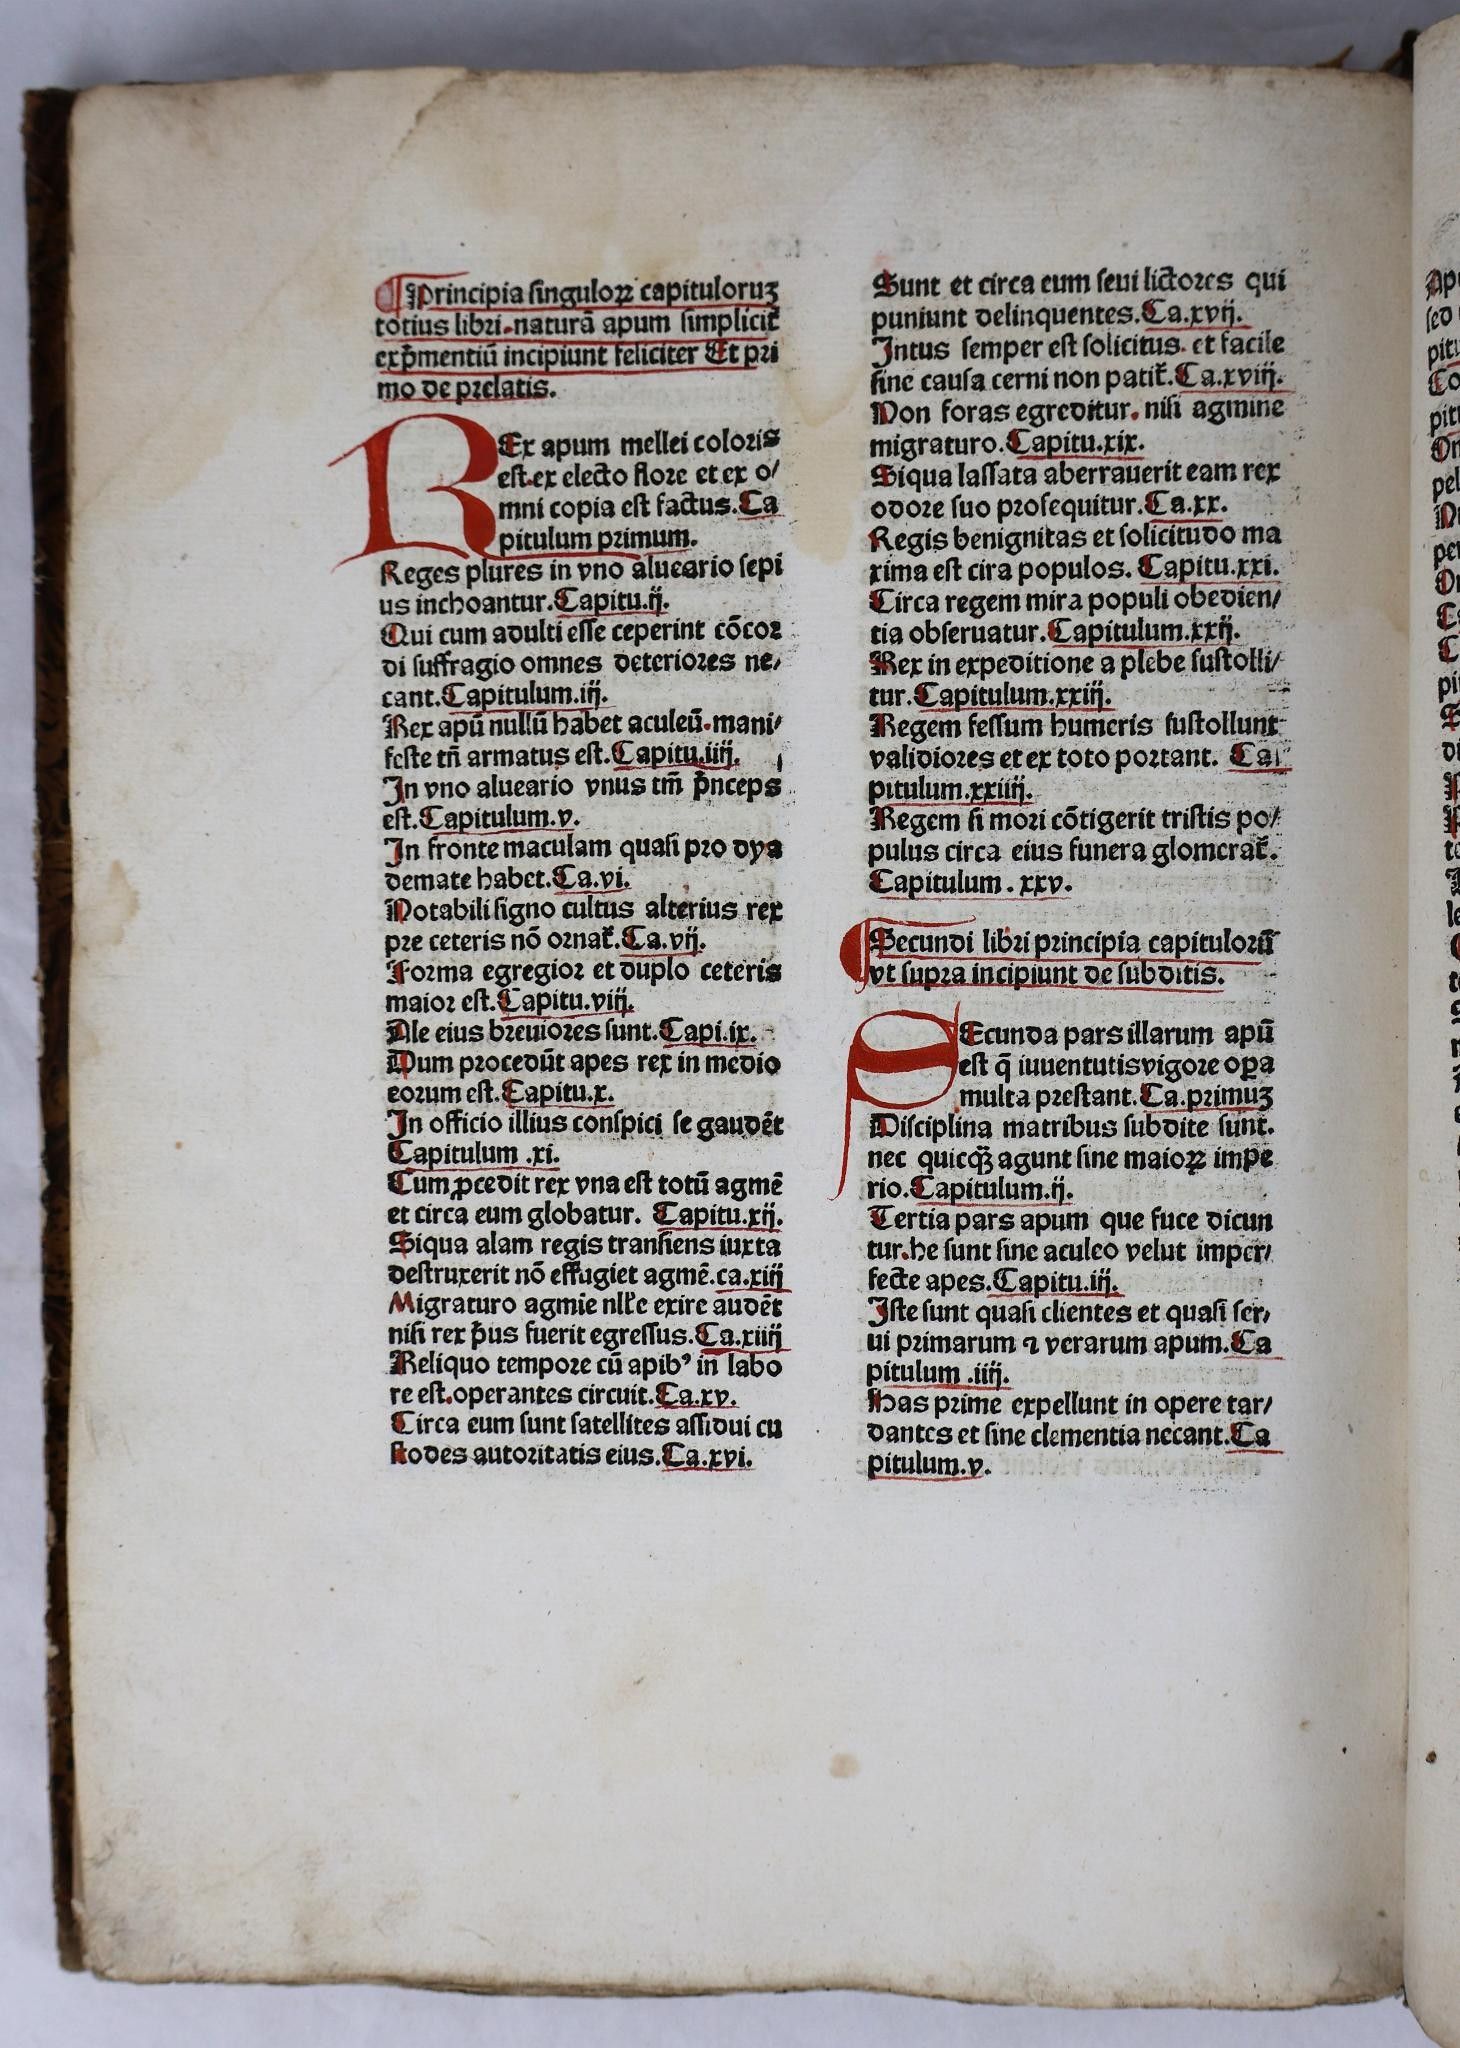 ¶Principia singuloꝝ capituloruꝫ
totius libri.naturā apum simplicit̃
exp̄mentiū incipiunt feliciter Et pri
mo de prelatis.
REx apum mellei coloris
est.ex electo flore et ex o/
mni copia est factus.Ca
pitulum primum.
Reges plures in vno alueario sepi
us inchoantur.Capitu.ij.
Qui cum adulti esse ceperint cōcor
di suffragio omnes deteriores ne/
cant.Capitulum.iij.
Rex apū nullū habet aculeū.mani/
feste tn̄ armatus est.Capitu.iiij.
In vno alueario vnus tm̄ p̄nceps
est.Capitulum.v.
In fronte maculam quasi pro dya
demate habet.Ca.vi.
Notabili signo cultus alterius rex
pre ceteris nō ornat̃.Ca.vij.
Forma egregior et duplo ceteris
maior est.Capitu.viij.
Ale eius breuiores sunt.Capi.ix.
Dum procedūt apes rex in medio
eorum est.Capitu.x.
In officio illius conspici se gaudēt
Capitulum .xi.
Cum ꝓcedit rex vna est totū agmē
et circa eum globatur. Capitu.xij.
Siqua alam regis transiens iuxta
destruxerit nō effugiet agmē.ca.xiij
Migraturo agmīe nll'e exire audēt
nisi rex p̄us fuerit egressus.Ca.xiiij
Reliquo tempore cū apibꝰ in labo
re est.operantes circuit.Ca.xv.
Circa eum sunt satellites assidui cu
stodes autoritatis eius.Ca.xvi.
Sunt et circa eum seui lictores qui
puniunt delinquentes.Ca.xvij.
Intus semper est solicitus. et facile
sine causa cerni non patit̃.Ca.xviij.
Non foras egreditur. nisi agmine
migraturo.Capitu.xix.
Siqua lassata aberrauerit eam rex
odore suo prosequitur.Ca.xx.
Regis benignitas et solicitudo ma
xima est cira populos. Capitu.xxi.
Circa regem mira populi obedien/
tia obseruatur.Capitulum.xxij.
Rex in expeditione a plebe sustolli/
tur.Capitulum.xxiij.
Regem fessum humeris sustollunt
validiores et ex toto portant. Ca
pitulum.xxiiij.
Regem si mori cōtigerit tristis po/
pulus circa eius funera glomerat̃.
Capitulum . xxv.
¶Secundi libri principia capitulorū
vt supra incipiunt de subditis.
SEcunda pars illarum apū
est q̄ iuuentutis vigore oꝑa
multa prestant.Ca.primuꝫ
Disciplina matribus subdite sunt.
nec quicq̄ꝫ agunt sine maioꝝ impe
rio.Capitulum.ij.
Tertia pars apum que fuce dicun
tur.he sunt sine aculeo velut imper/
fecte apes.Capitu.iij.
Iste sunt quasi clientes et quasi ser/
ui primarum ⁊ verarum apum.Ca
pitulum .iiij.
Has prime expellunt in opere tar/
dantes et sine clementia necant.Ca
pitulum.v.